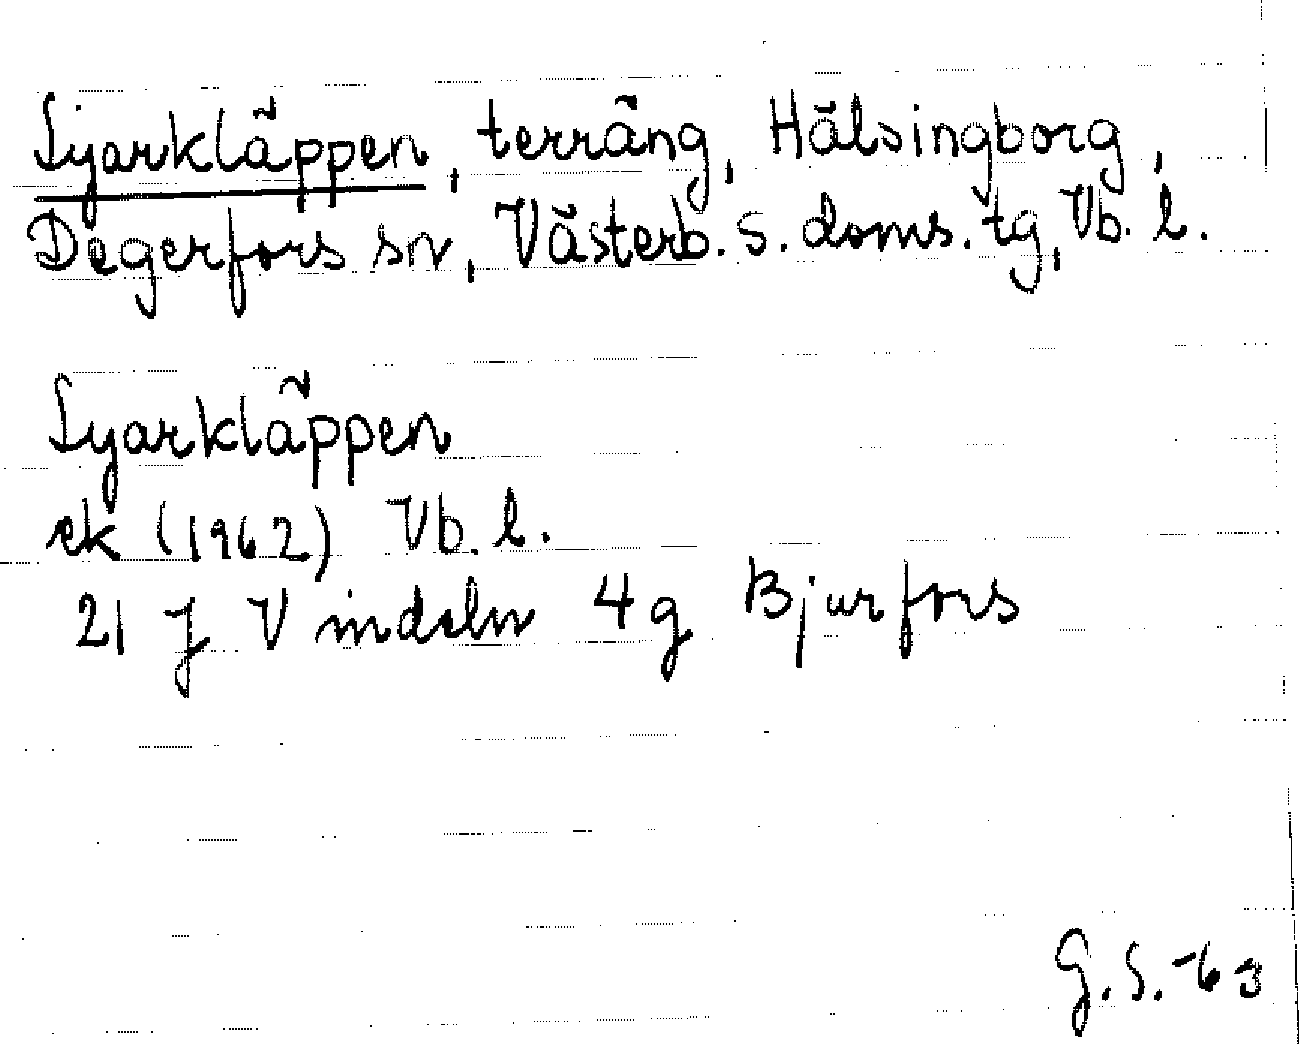 Lyarkläppen, terräng, Hälsingborg,
Degerfors sn, Västerb. s. doms. tg, Vb. l.
Lyarkläppen
ek (1962) Vb. l.
21 J Vindeln 4g Bjurfors
G.S.-63